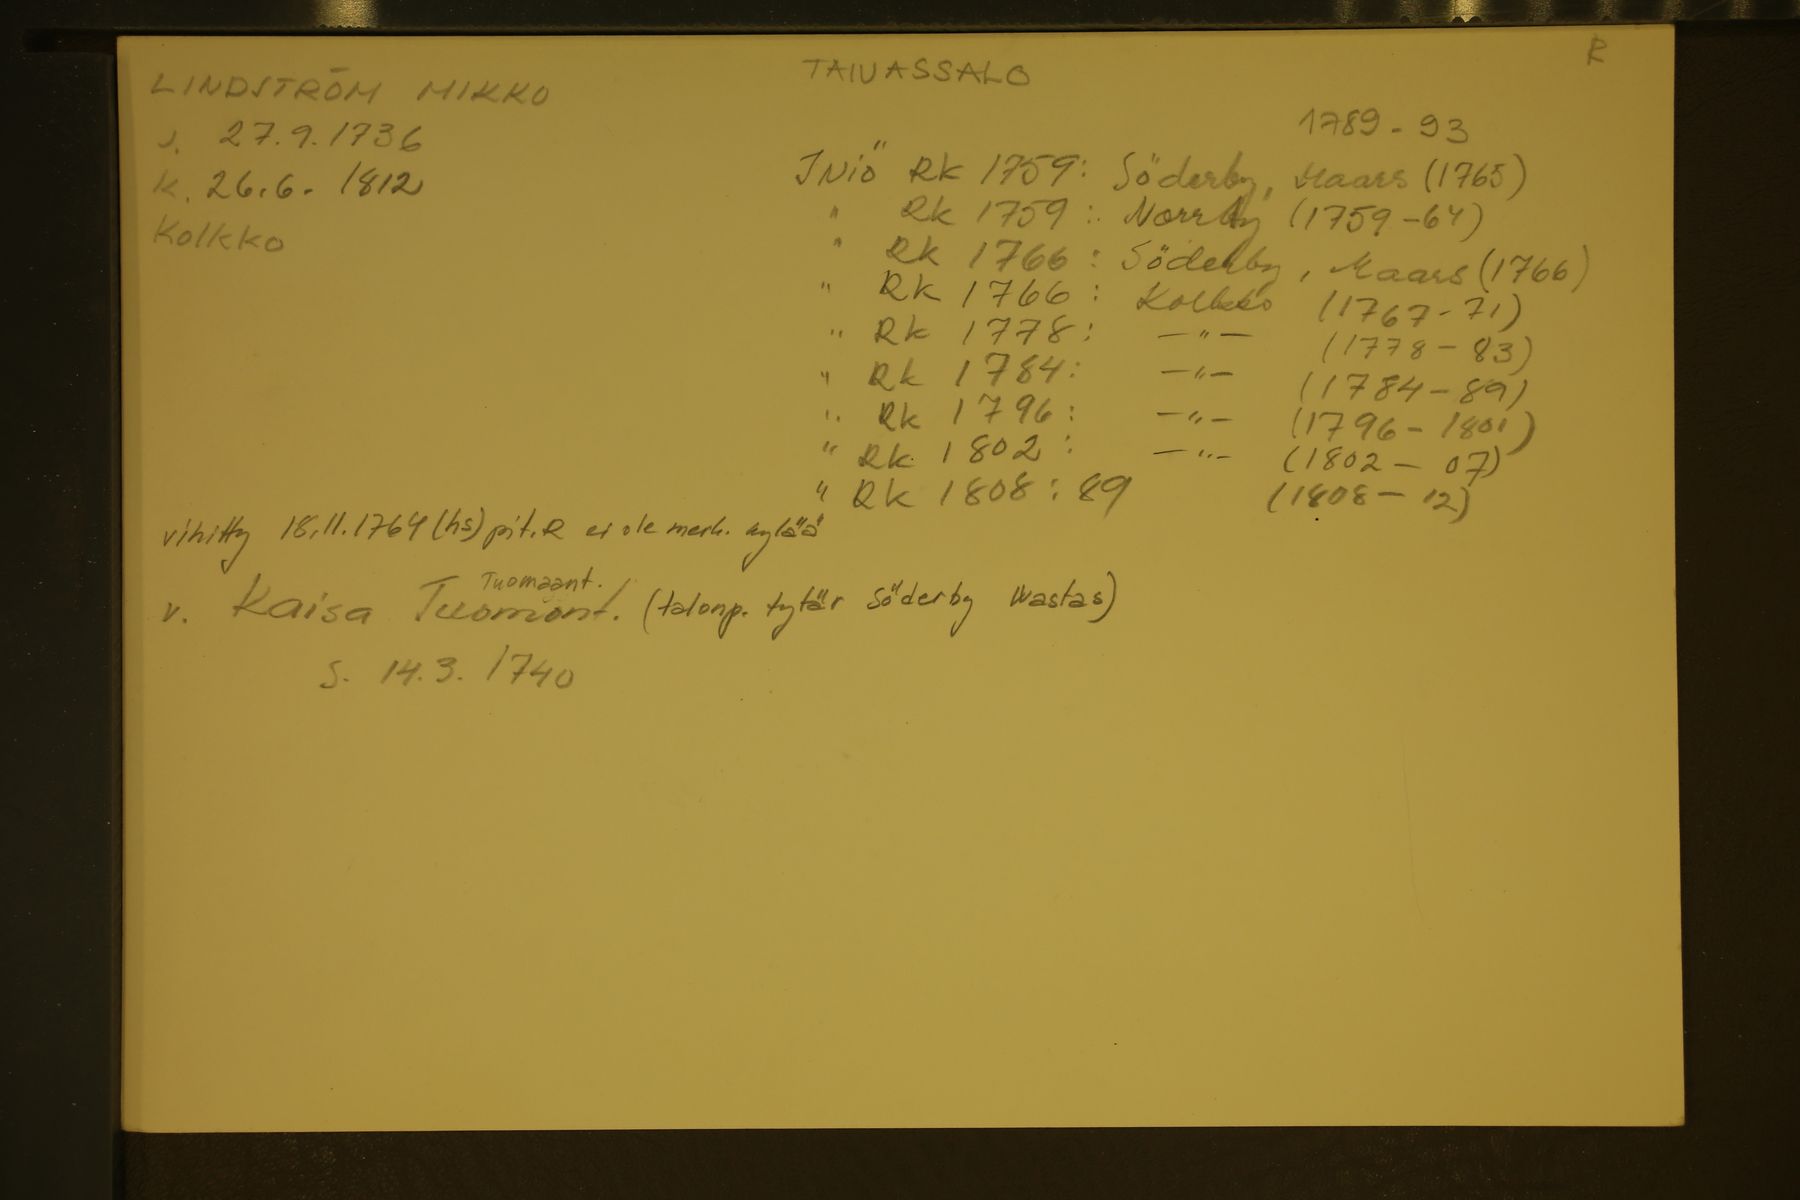 R
LINDSTRÖM MIKKO TAIVASSALO
s. 27.9.1736 1789-93
k. 26.6. 1812 INiÖ RK 1759: Söderby, Maars (1765)
Kolkko " Rk 1759: Norrby (1759-64)
" Rk 1766: Söderby, Maars (1766)
" RK 1766: Kolkko (1767-71)
" RK 1778: —"— (1778-83)
" Rk 1784: —"— (1784-89)
" RK 1796: —"— (1796-1801)
" RK 1802: —"— (1802-07)
" RK 1808: 89 (1808-12)
vihitty 18.11.1764 (hs) pit. R ei ole merk. kylää
Tuomaant.
v. Kaisa Tuomont. (talonp. tytär Söderby Wastas)
S. 14.3. 1740